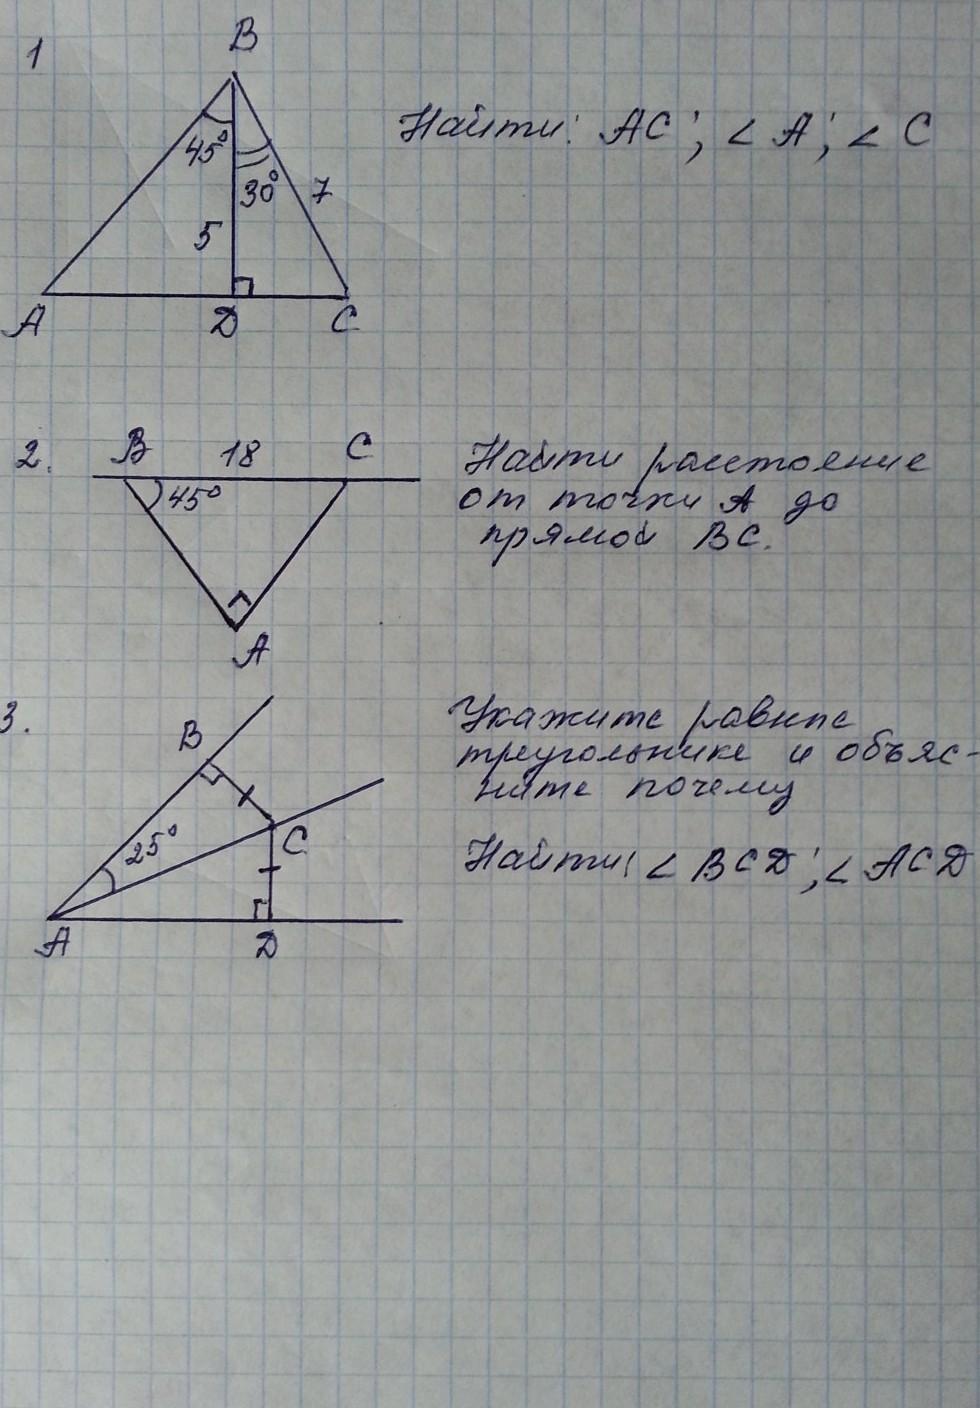 1
B
Найти: AC; ∠A; ∠C
45°
30°
7
5
A
D
C
2.
B
18
C
45°
A
Найти расстояние
от точки A до
прямой BC.
3.
B
25°
C
A
D
Укажите равные
треугольнике и объяс-
ните почему
Найти: ∠BCD; ∠ACD